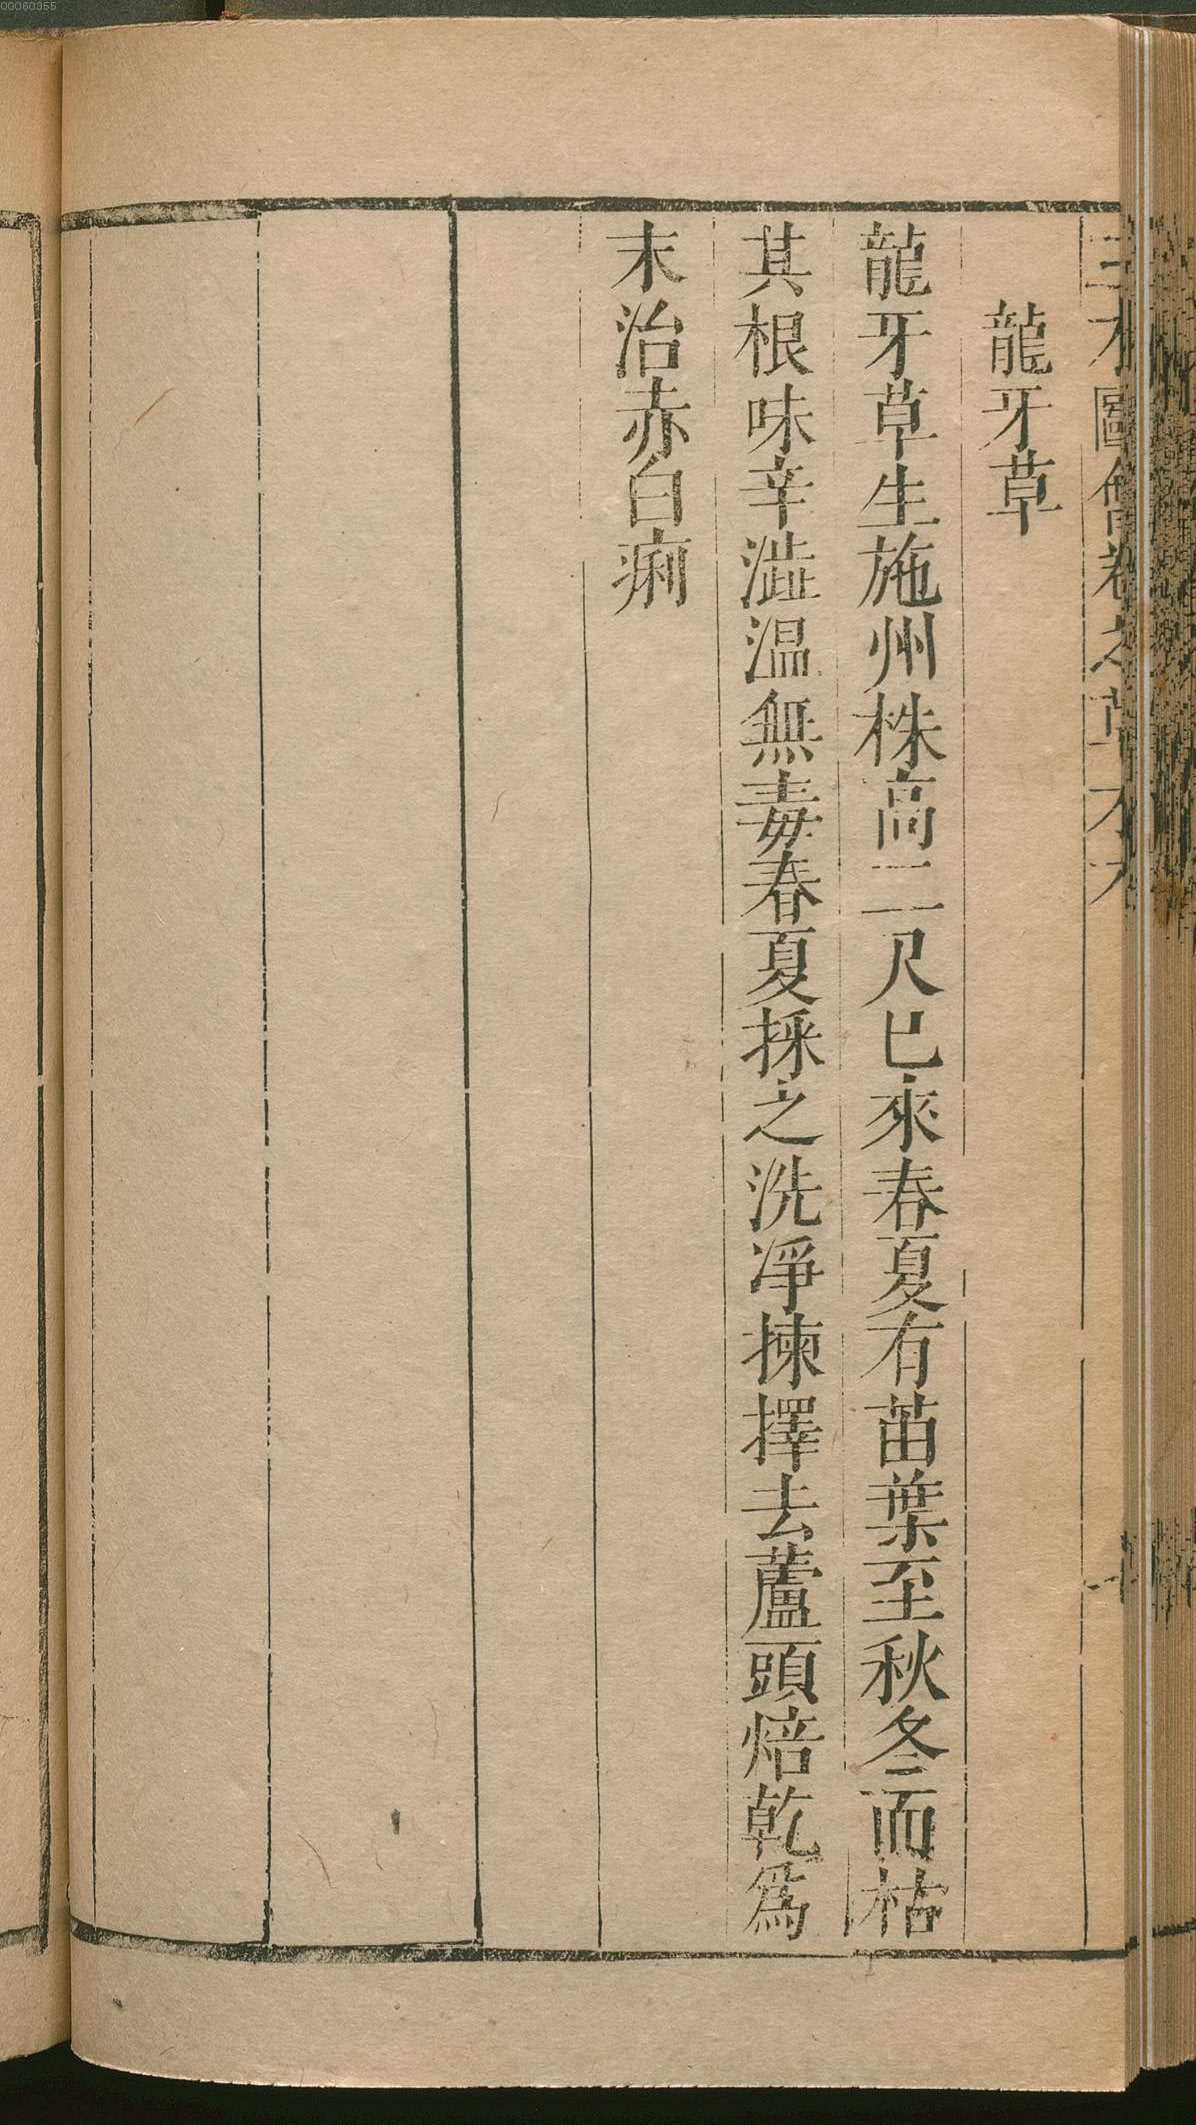 00060355
龍牙草
龍牙草生施州株高二尺已來春夏有苗葉至秋冬而枯
其根味辛澁溫無毒春夏採之洗凈揀擇去蘆頭焙乾爲
末治赤白痢